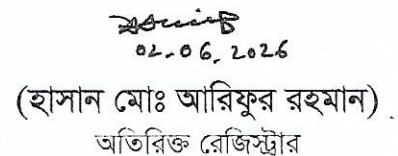 02.06.2026
(হাসান মোঃ আরিফুর রহমান)
অতিরিক্ত রেজিস্ট্রার